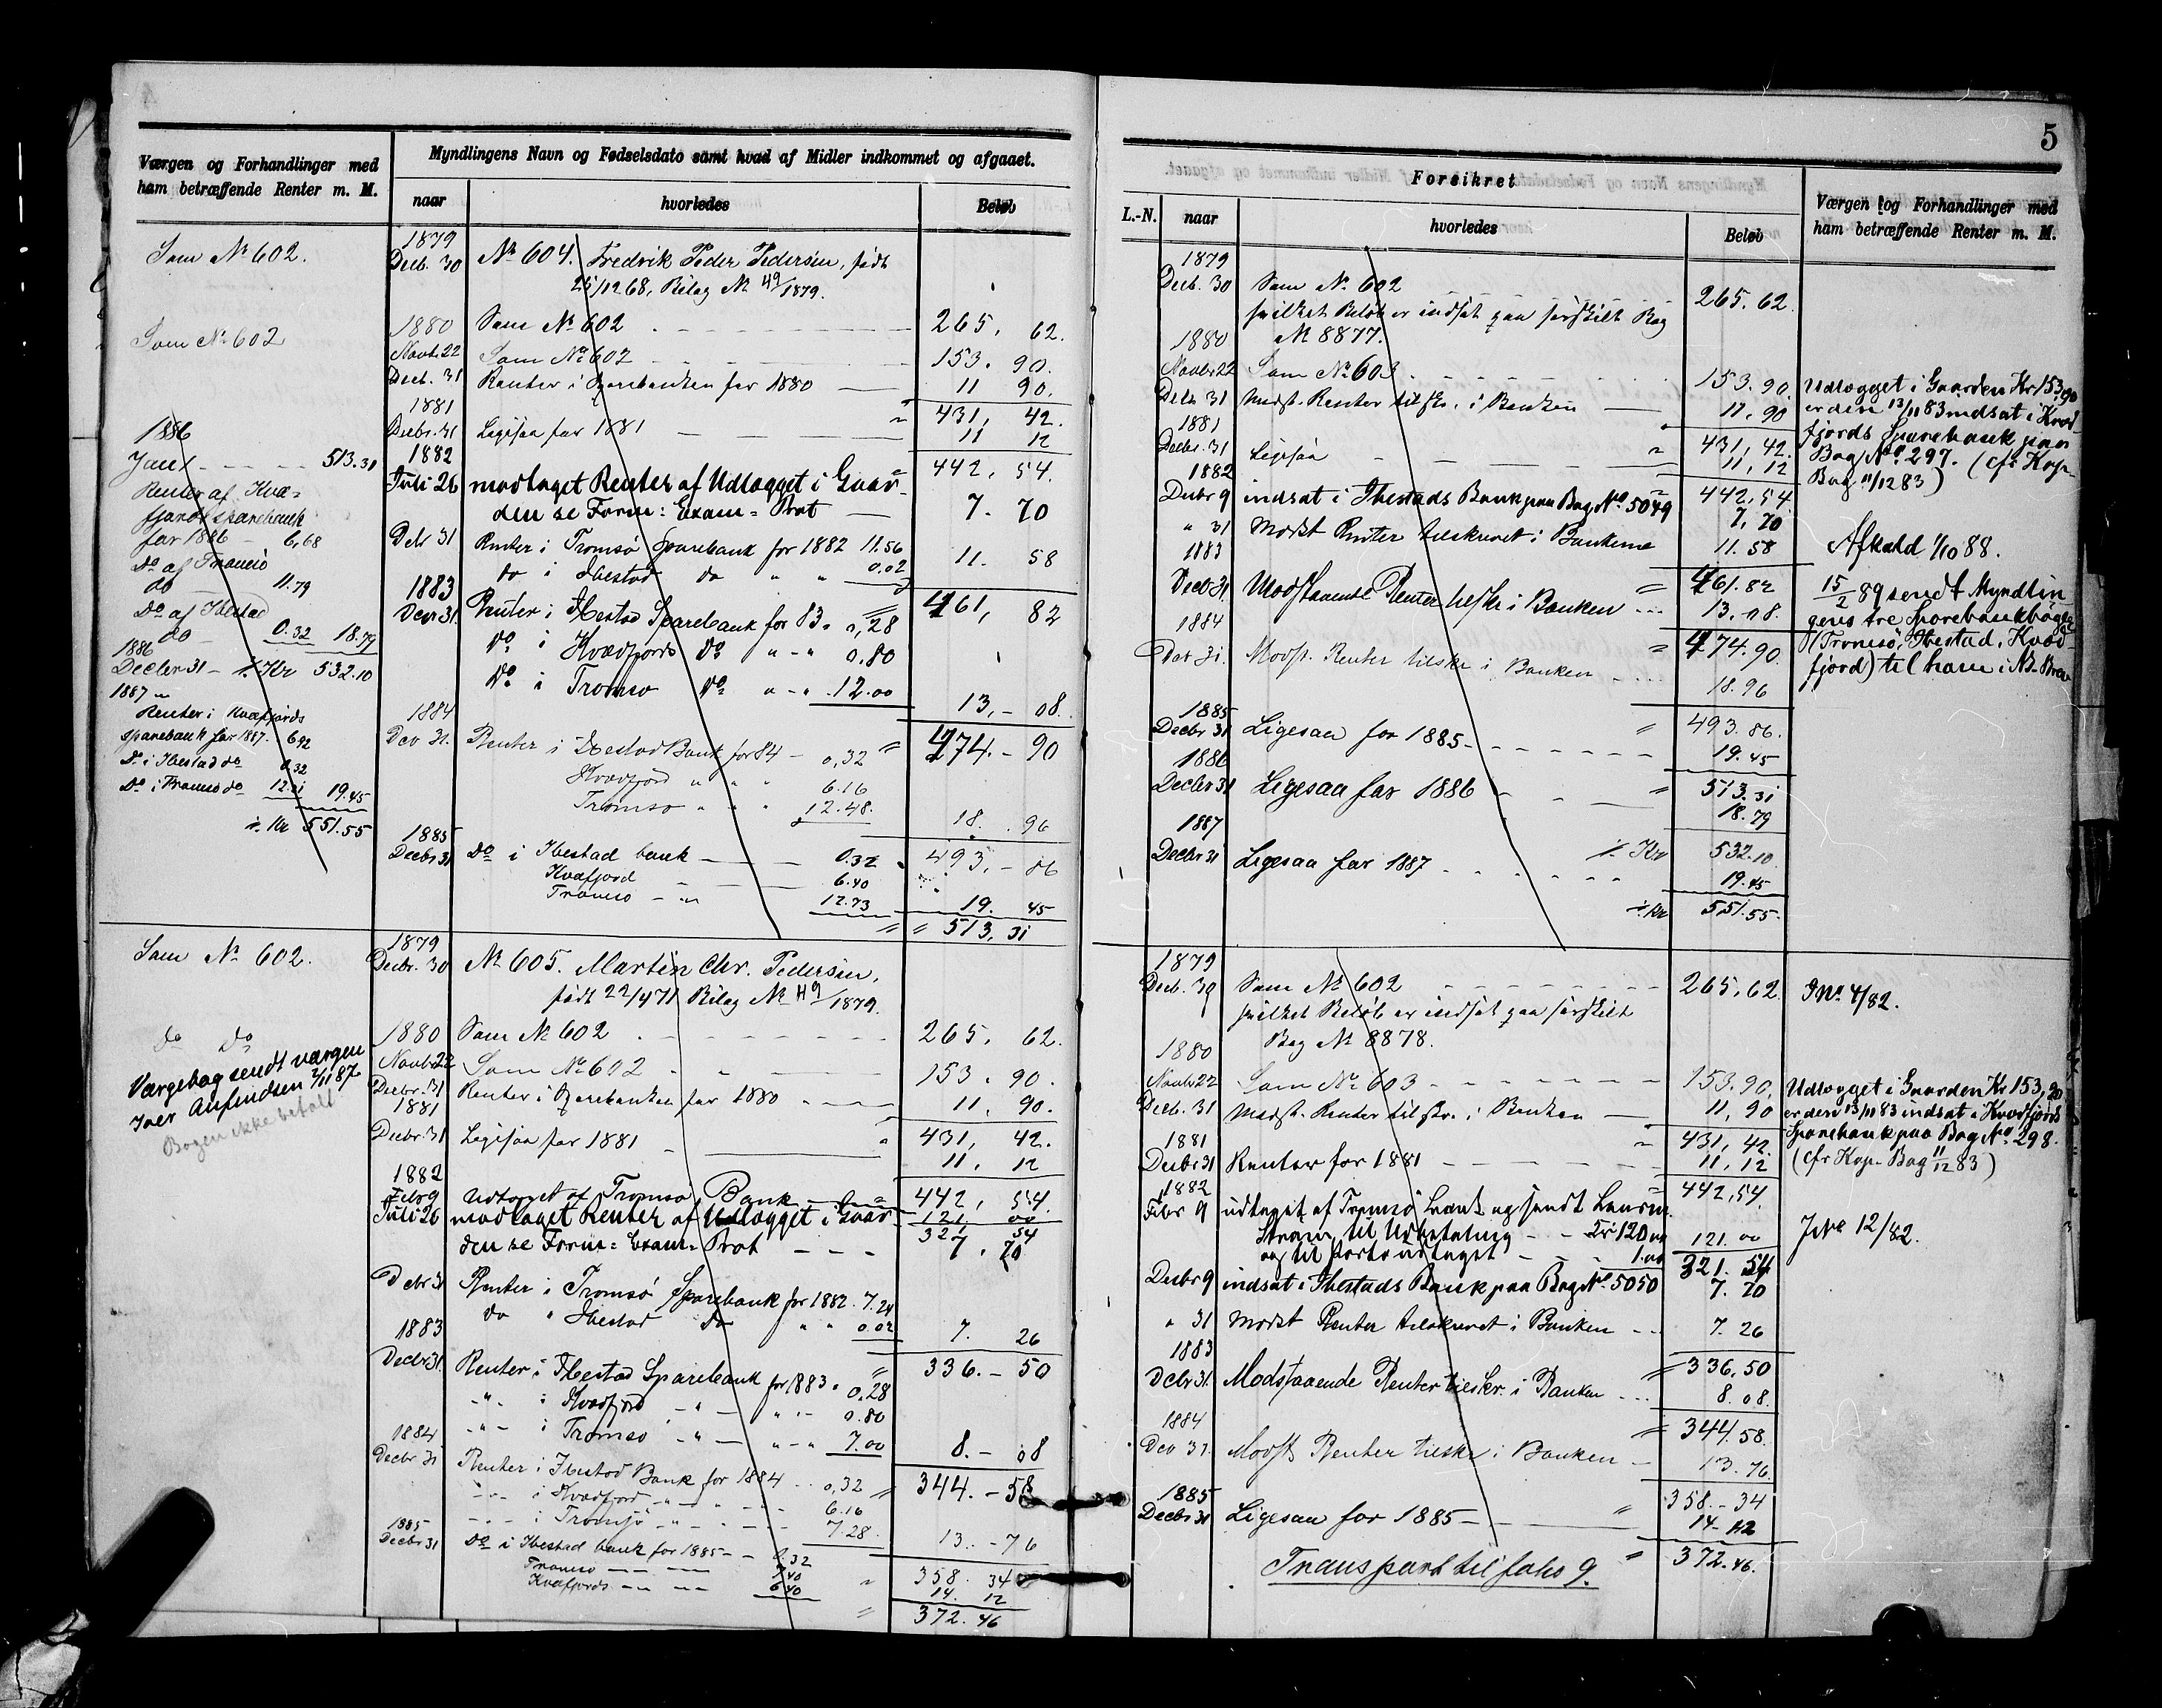 Værgen og Forhandlinger med
ham betræffende Renter m. M.
Myndlingens Navn og Fødselsdato samt hvad af Midler indkommet og afgaaet.
naar
hvorledes
Beløb
Som № 602.
1879
Decb. 30
№ 604. Fredrik Peder Pedersen, født
25/12 68, Bilag № 49/1879.
Som № 602
1880 Som № 602 265. 62.
Novbr 22 Som № 602 153. 90.
Decb. 31 Renter i Sparebanken for 1880 11 90.
1881
" 431, 42.
Decbr. 31 Ligesaa for 1881 11 12
1882
442, 54.
Juli 26 modtaget Renter af Udlægget i Gaar-
den se Form: Exam= Prot 7. 70
Debr 31 Renter i Tromsø Sparebank for 1882 11.56
do i Ibestad do " " 0.02
11. 58
1883
461, 82
Decr 31. Renter i Ibestad Sparebank for 83. 0,28
Do i Kvædfjords Do " - " 0.80
Do i Tromsø Do " - " 12.00
13, - 08.
1884
474. - 90
Dcbr 31. Renter i Ibestad Bank for 84 - 0,32
Kvædfjord " " " 6.16
Tromsø " " " 12.48.
18. . 96
1885
Decbr 31 Do i Ibestad bank 0.32 493, - 86
Kvæfjord 6.40
Tromsø - " 12.73
19. 45
" " 513, 31
1886
Jan 1 - - - - 513.31
Renter af Kvæ=
fjords sparebank
for 1886 - 6,68
Do af Tromsø
do - 11.79
Do af Ibestad
do - 0.32 18.79
1886
Decbr 31 - Kr 532.10
1887 "
Renter i Kvæfjords
sparebank for 1887. 6.92
Do i Ibestad do 0.32
Do i Tromsø do 12.21 19.45
Kr 551.55
Som № 602.
1879
Decbr. 30
№ 605. Martin Chr. Pedersen,
født 22/4 71 Bilag № 49/1879.
do Do
Værgebog sendt værgen
Iver Anfindsen 2/11 87.
Bogen ikke betalt
1880 Som № 602 265. 62.
Novbr 22 Som № 602 153. 90.
Decbr. 31 Renter i Sparebanken for 1880 11. 90.
1881
" 431, 42.
Decbr. 31 Ligesaa for 1881 11, 12
1882
442, 54.
Febr 9 Udtaget af Tromsø Bank 121. 00
321 54
Juli 26 modtaget Renter af Udlægget i Gaar-
den se Form= Exam= Prot - - - 7. 70
Dcbr 31 Renter i Tromsø Sparebank for 1882. 7.24
do " Ibestad do " " 0.02
7. 26
1883
336. - 50
Decbr 31. Renter i Ibestad Sparebank for 1883. 0.28
- " - i Kvædfjord - " - " - 0.80
- " - i Tromsø - " - " - " 7.00
8. - 08
1884
344. - 58
Decbr 31 Renter i Ibestad Bank for 1884 0,32
- " - i Kvædfjord - " - 6.16
- " - i Tromsø - " - 7.28
13. - 76
1885
Decbr 31 Do i Ibestad bank for 1885 - - 0.32
358. 34
Tromsø 7.40
Kvæfjords 6.40
14. 12
" 372. 46
5
Forsikret
L.-N.
naar
hvorledes
Beløb
Værgen og Forhandlinger med
ham betræffende Renter m. M.
1879
Decb. 30 Som № 602 265. 62.
hvilket Beløb er indsat paa særskilt Bog
№ 8877.
1880
Novbr 22 Som № 603 153. 90
Decb 31 Modst. Renter tilskr. i Banken 11. 90
1881
" 431, 42.
Decbr. 31 Ligesaa 11, 12
1882
442, 54
Decbr 9 indsat i Ibestads Bank paa Bog № 5049 7, 70
" 31 Modst Renter tilskrevet i Bankerne 11. 58
1883
461. 82
Decbr 31. Modstaaende Renter tilskr i Banken - - - 13. 08.
1884
474. 90.
Dcbr 31. Modst. Renter tilskr i Banken 18. 96
1885
" 493. 86.
Decbr 31 Ligesaa for 1885 - - - - - 19. 45
1886
" 513. 31
Decbr 31 Ligesaa for 1886 18. 79
1887
Kr 532. 10
Decbr 31 Ligesaa for 1887 19. 45
Kr 551. 55.
Udlægget i Gaarden Kr 153.90
er den 13/11 83 indsat i Kvæd-
fjords Sparebank paa
Bog № 297. (cfr Kop-
Bog 11/12 83)
Afkald 1/10 88.
15/2 89 sendt Myndlin
gens tre Sparebankbøger
(Tromsø, Ibestad, Kvæd-
fjord) til ham i
1879
Decb. 30 Som № 602 265, 62.
hvilket Beløb er indsat paa særskilt
Bog № 8878.
1880
Novbr 22 Som № 603 153. 90.
Decb. 31 Modst. Renter tilskr. i Banken 11, 90
1881
" 431, 42.
Decbr 31 Renter for 1881 11, 12
1882
442, 54.
Febr 9 udtaget af Tromsø bank og sendt
Strøm til Udbetaling - - Kr 120.00
og til Porto udtaget - - 1.00
121. 00
321. 54
Decbr 9 indsat i Ibestads Bank paa Bog № 5050 7. 70
" 31 Modst Renter tilskrevet i Banken 7. 26
1883
336, 50
Dcbr 31. Modstaaende Renter tilskr. i Banken 8. 08.
1884
344. 58.
Dcbr 31. Modst Renter tilskr i Banken 13. 76.
1885
358. - 34
Decbr 31 Ligesaa for 1885 14 - 12
" 372. 46.
Transport til folio 9.
JNo 4/82.
Udlægget i Gaarden Kr 153,90
er den 13/11 83 indsat i Kvædfjords
Sparebank paa Bog № 298.
(cfr Kop- Bog 11/12 83)
JNo 12/82.